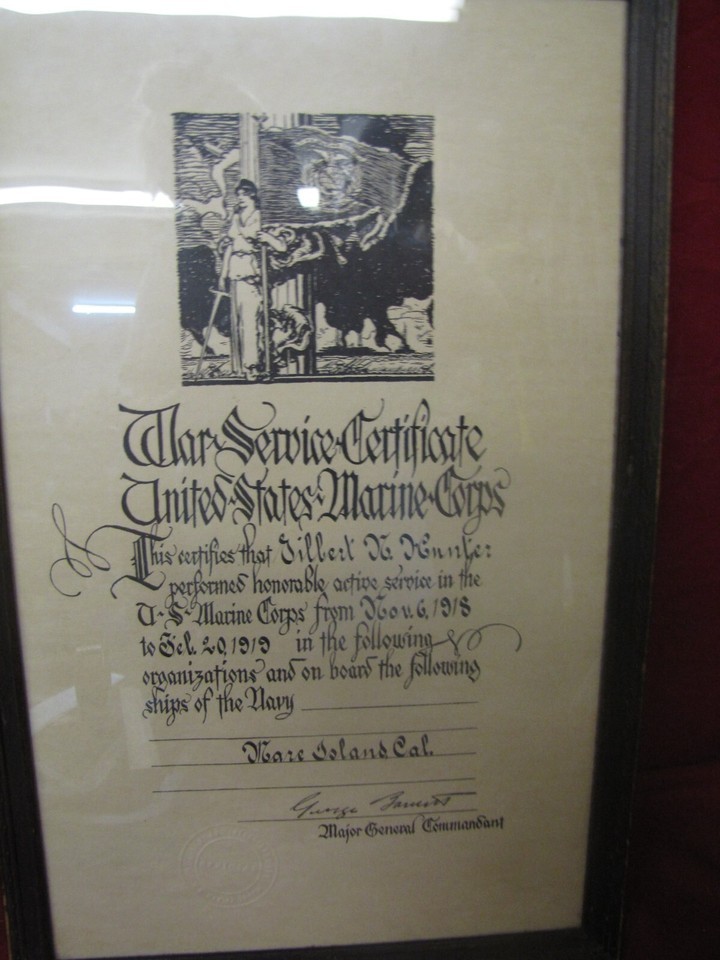 War Service Certificate
United States Marine Corps
This certifies that Tilbert N. Hunter
performed honorable active service in the
U-S-Marine Corps from Nov. 6, 1918
to Feb. 20, 1919 in the following
organizations and on board the following
ships of the Navy
Mare Island, Cal.
George Barnett
Major General Commandant